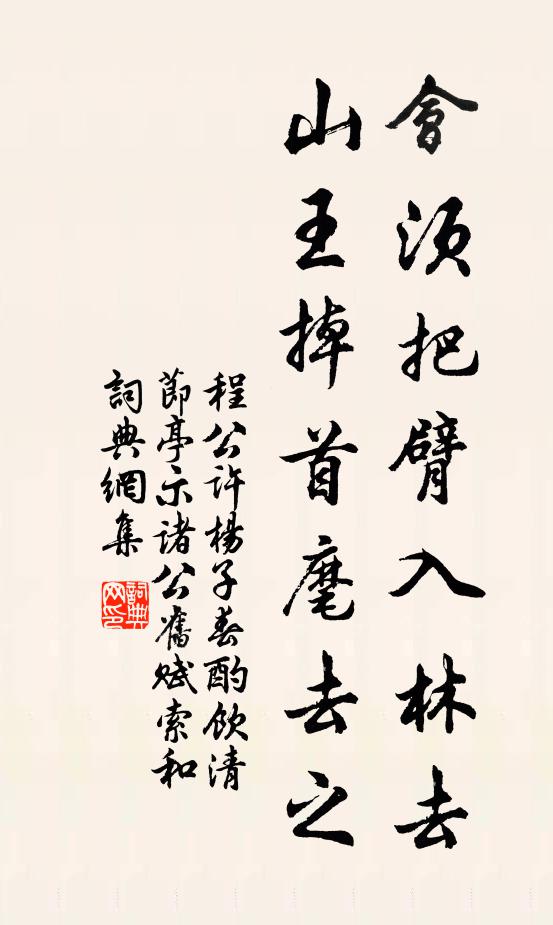 會須把臂入林去
山王掉首麾去之
程公許楊子春酌飲清
節亭示諸公舊賦索和
詞典網集
詞典
网印